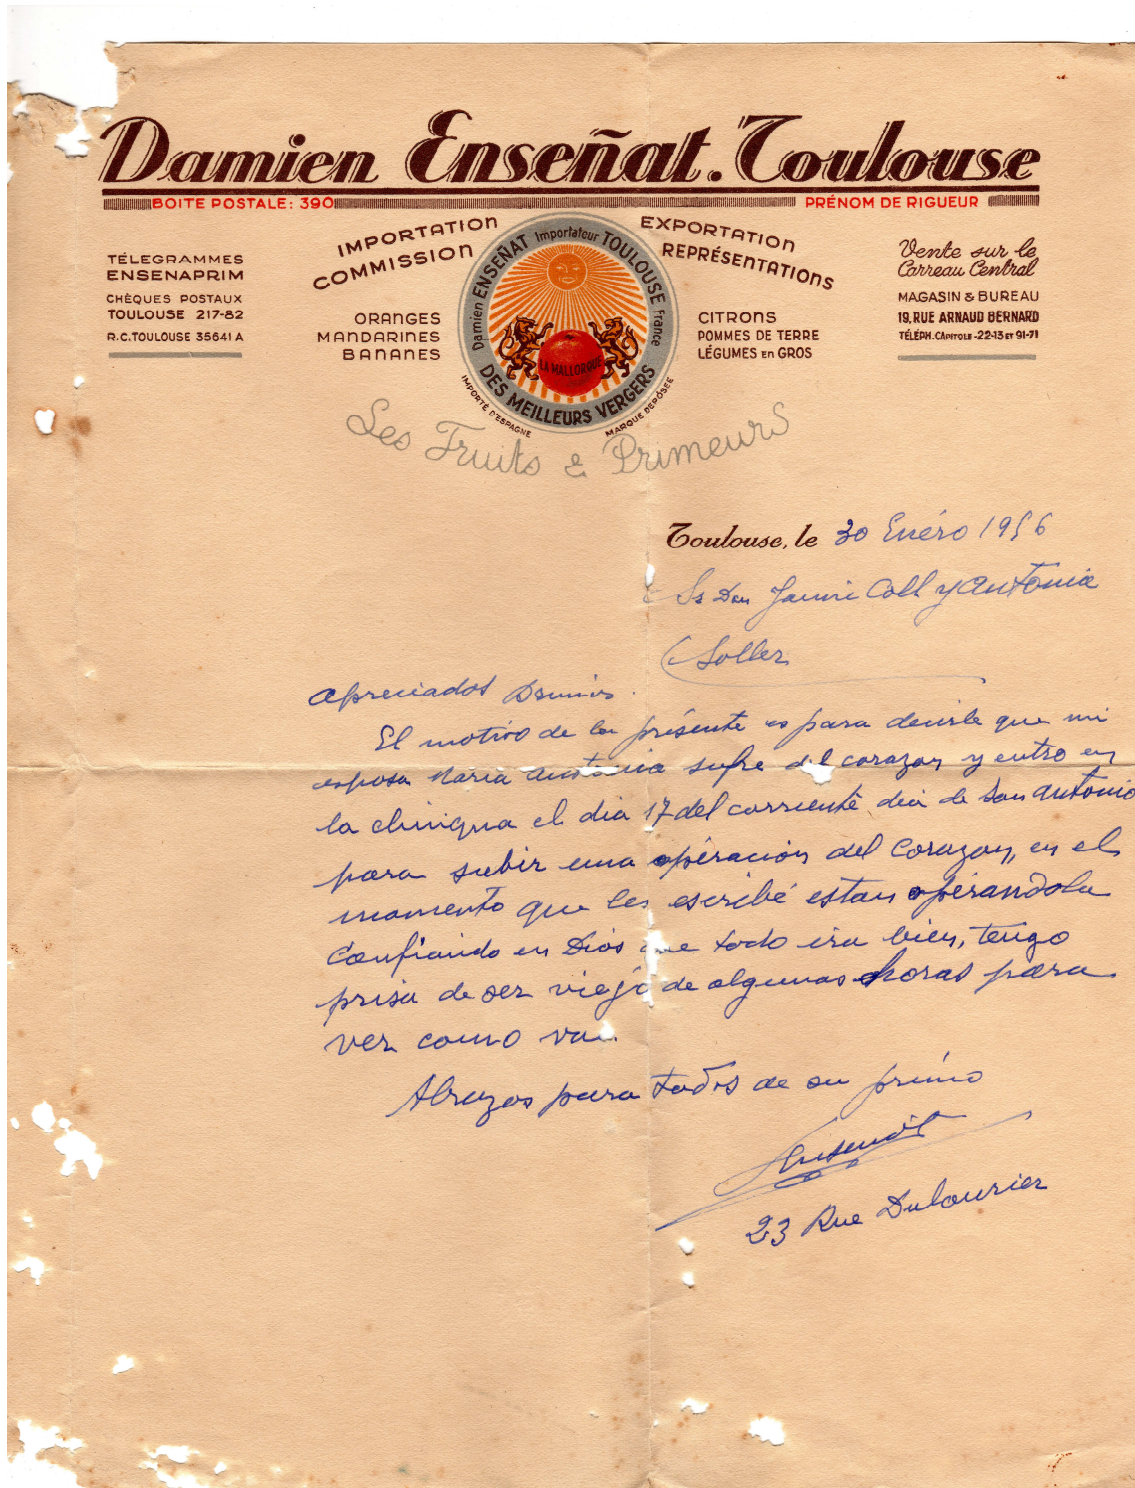 Damien Enseñat. Toulouse
BOITE POSTALE: 390
PRÉNOM DE RIGUEUR
TÉLEGRAMMES
ENSENAPRIM
CHÈQUES POSTAUX
TOULOUSE 217-82
R.C. TOULOUSE 35641 A
IMPORTATION
COMMISSION
ORANGES
MANDARINES
BANANES
Damien ENSEÑAT Importateur TOULOUSE France
LA MALLORQUE
DES MEILLEURS VERGERS
IMPORTÉ D'ESPAGNE
MARQUE DÉPOSÉE
EXPORTATION
REPRÉSENTATIONS
CITRONS
POMMES DE TERRE
LÉGUMES EN GROS
Vente sur le
Carreau Central
MAGASIN & BUREAU
19, RUE ARNAUD BERNARD
TÉLÉPH. CAPITOLE - 22-13 ET 91-71
Les Fruits & Primeurs
Toulouse, le 30 Enéro 1956
Sr Don Jaime Coll y Antonia
Soller
Apreciados
El motivo de la présente es para decirle que mi
esposa Maria Antonia sufre del corazon y entro en
la cliniqua el dia 17 del corrienté dia de San Antonio
para subir una opéracion del corazon, en el
momento que les escribé estan opérandola
Confiando en Dios que todo ira bien, tengo
prisa de ser viejo de algunas horas para
ver como va.
Abrazos para todos de su primo
Enseñat
23 Rue Dulaurier